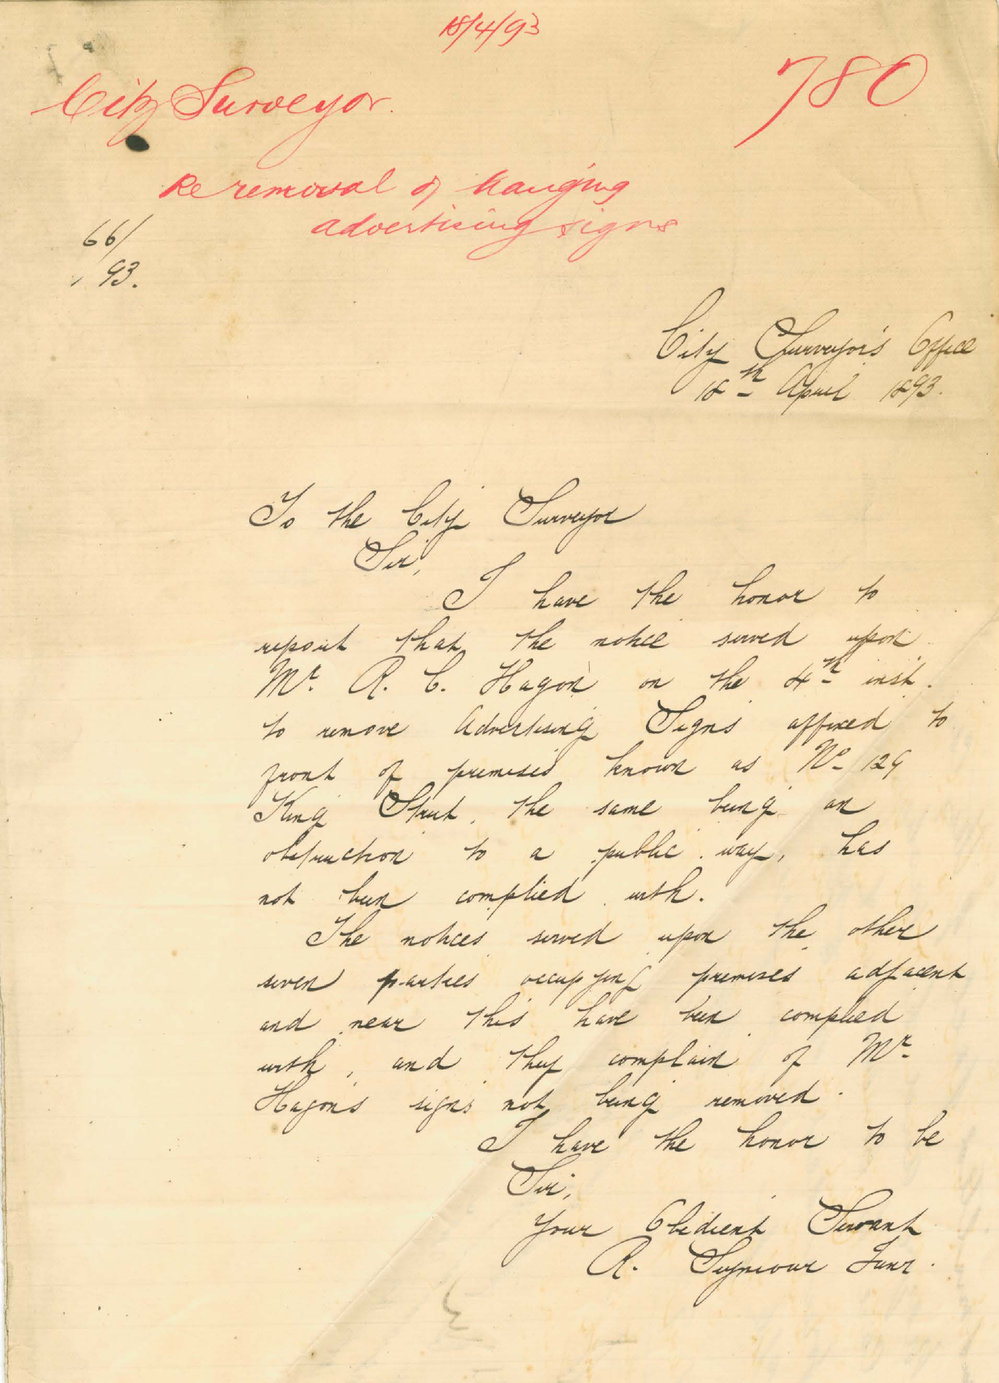 18/4/93
780
City Surveyor.
Re removal of hanging
advertising signs
66/
93.
City Surveyor's Office
18th April 1893.
To the City Surveyor
Sir,
I have the honor to
report that the notice served upon
Mr. R. C. Hagon on the 4th inst.
to remove Advertising Signs affixed to
front of premises known as No 129
King Street, the same being an
obstruction to a public way, has
not been complied with.
The notices served upon the other
seven parties occupying premises adjacent
and near this have been complied
with, and they complain of Mr.
Hagon's signs not being removed.
I have the honor to be
Sir,
Your Obedient Servant
R. Seymour Junr.